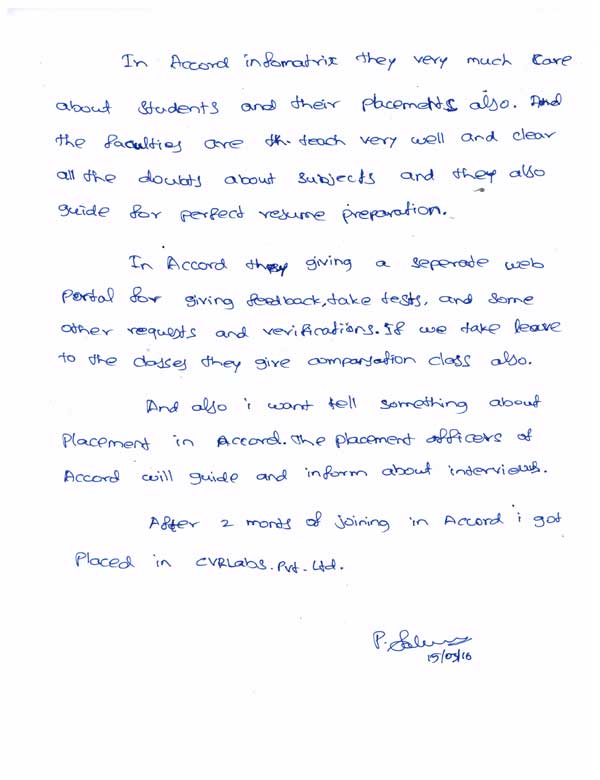 In Accord infomatrix they very much care
about students and their placements also. And
the faculties are th. teach very well and clear
all the doubts about subjects and they also
guide for perfect resume preparation.
In Accord they giving a seperate web
portal for giving feedback, take tests, and some
other requests and verifications. If we take leave
to the classes they give compansation class also.
And also i want tell something about
Placement in Accord. The placement officers of
Accord will guide and inform about interviews.
After 2 monts of joining in Accord i got
Placed in CVRLabs. Pvt. Ltd.
P.
15/03/16